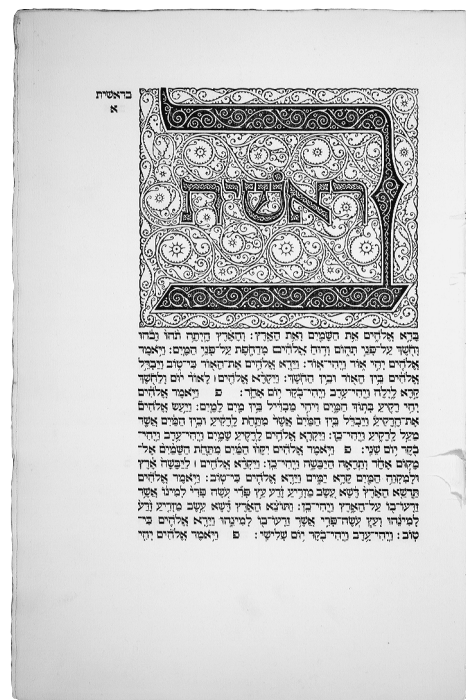 בראשית
א
בראשית
בָּרָא אֱלֹהִים אֵת הַשָּׁמַיִם וְאֵת הָאָרֶץ: וְהָאָרֶץ הָיְתָה תֹהוּ וָבֹהוּ
וְחֹשֶׁךְ עַל־פְּנֵי תְהוֹם וְרוּחַ אֱלֹהִים מְרַחֶפֶת עַל־פְּנֵי הַמָּיִם: וַיֹּאמֶר
אֱלֹהִים יְהִי אוֹר וַיְהִי־אוֹר: וַיַּרְא אֱלֹהִים אֶת־הָאוֹר כִּי־טוֹב וַיַּבְדֵּל
אֱלֹהִים בֵּין הָאוֹר וּבֵין הַחֹשֶׁךְ: וַיִּקְרָא אֱלֹהִים ׀ לָאוֹר יוֹם וְלַחֹשֶׁךְ
קָרָא לָיְלָה וַיְהִי־עֶרֶב וַיְהִי־בֹקֶר יוֹם אֶחָד: פ וַיֹּאמֶר אֱלֹהִים
יְהִי רָקִיעַ בְּתוֹךְ הַמָּיִם וִיהִי מַבְדִּיל בֵּין מַיִם לָמָיִם: וַיַּעַשׂ אֱלֹהִים
אֶת־הָרָקִיעַ וַיַּבְדֵּל בֵּין הַמַּיִם אֲשֶׁר מִתַּחַת לָרָקִיעַ וּבֵין הַמַּיִם אֲשֶׁר
מֵעַל לָרָקִיעַ וַיְהִי־כֵן: וַיִּקְרָא אֱלֹהִים לָרָקִיעַ שָׁמָיִם וַיְהִי־עֶרֶב וַיְהִי־
בֹקֶר יוֹם שֵׁנִי: פ וַיֹּאמֶר אֱלֹהִים יִקָּווּ הַמַּיִם מִתַּחַת הַשָּׁמַיִם אֶל־
מָקוֹם אֶחָד וְתֵרָאֶה הַיַּבָּשָׁה וַיְהִי־כֵן: וַיִּקְרָא אֱלֹהִים ׀ לַיַּבָּשָׁה אֶרֶץ
וּלְמִקְוֵה הַמַּיִם קָרָא יַמִּים וַיַּרְא אֱלֹהִים כִּי־טוֹב: וַיֹּאמֶר אֱלֹהִים
תַּדְשֵׁא הָאָרֶץ דֶּשֶׁא עֵשֶׂב מַזְרִיעַ זֶרַע עֵץ פְּרִי עֹשֶׂה פְּרִי לְמִינוֹ אֲשֶׁר
זַרְעוֹ־בוֹ עַל־הָאָרֶץ וַיְהִי־כֵן: וַתּוֹצֵא הָאָרֶץ דֶּשֶׁא עֵשֶׂב מַזְרִיעַ זֶרַע
לְמִינֵהוּ וְעֵץ עֹשֶׂה־פְּרִי אֲשֶׁר זַרְעוֹ־בוֹ לְמִינֵהוּ וַיַּרְא אֱלֹהִים כִּי־
טוֹב: וַיְהִי־עֶרֶב וַיְהִי־בֹקֶר יוֹם שְׁלִישִׁי: פ וַיֹּאמֶר אֱלֹהִים יְהִי